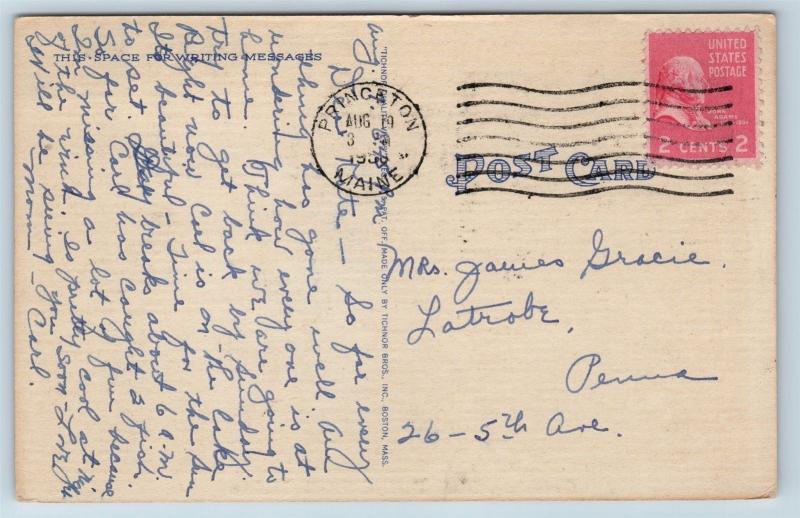 THIS SPACE FOR WRITING MESSAGES
Aug.
Dear – So far every
thing has gone well and
wondering how every one is at
home. Think we are going to
try to get back by Sunday.
Right now Carl is on the lake
Its beautiful – Time for the sun
to set. Day breaks about 6 a.m.
So far Carl has caught 3 fish
I'm missing a lot of fun because
of the wind. Is pretty cool at
Will be seeing you soon – Love
Mom – Carl.
"TICHNOR QUALITY VIEWS," REG. U. S. PAT. OFF. MADE ONLY BY TICHNOR BROS., INC., BOSTON, MASS.
PRINCETON
AUG 19
3
MAINE
POST CARD
UNITED
STATES
POSTAGE
JOHN
ADAMS
2 CENTS 2
Mrs. James Gracie.
Latrobe,
Penna
26 – 5th Ave.